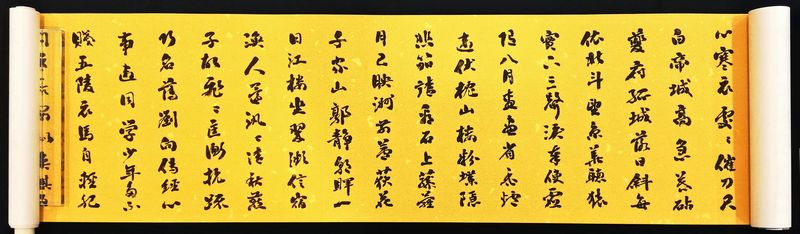 心寒衣處々催刀尺
白帝城高急暮砧
夔府孤城落日斜每
依北斗望京華聽猿
實下三聲淚奉使虛
隨八月查畫省香爐
違伏枕山樓粉堞隱
悲笳請看石上藤蘿
月已映洲前蘆荻花
千家山郭靜朝暉一
日江樓坐翠微信宿
漁人還汎々清秋燕
子故飛々匡衡抗疏
功名薄劉向傳經心
事違同學少年多不
賤五陵衣馬自輕肥